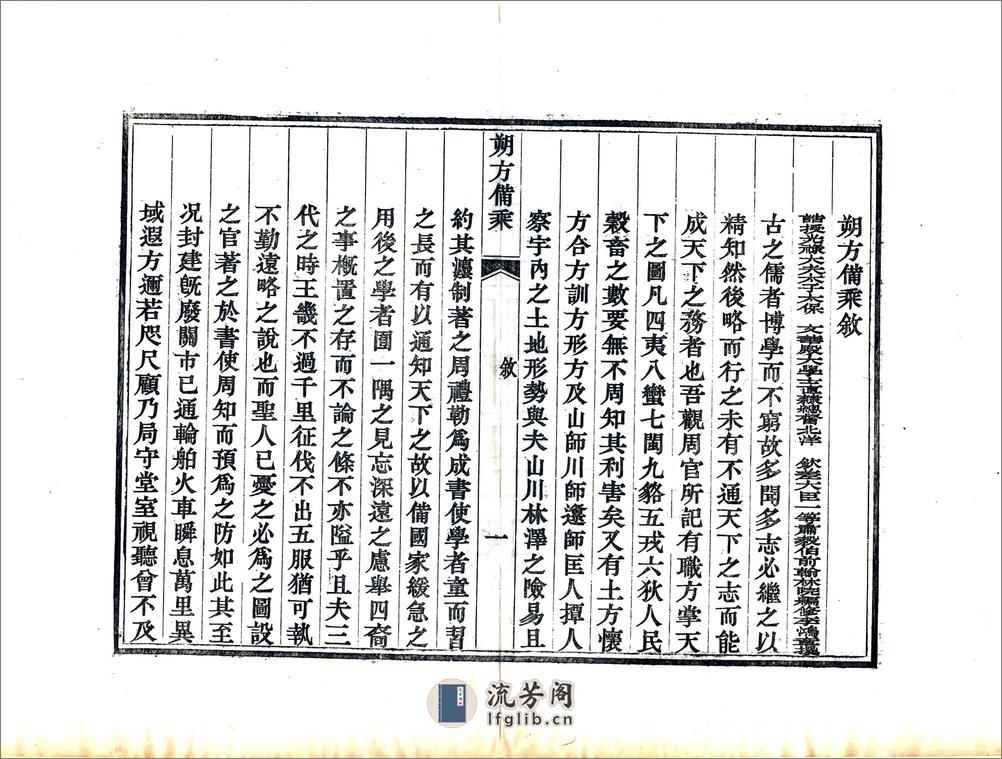 朔方備乘敘
誥授光祿大夫太子太保　文華殿大學士直隸總督北洋　欽差大臣一等肅毅伯前翰林院編修李鴻章撰
古之儒者博學而不窮故多聞多志必繼之以
精知然後略而行之未有不通天下之志而能
成天下之務者也吾觀周官所記有職方掌天
下之圖凡四夷八蠻七閩九貉五戎六狄人民
穀畜之數要無不周知其利害矣又有土方懷
方合方訓方形方及山師川師邍師匡人撢人
察宇內之土地形勢與夫山川林澤之險易且
朔方備乘
敘
一
約其瀍制著之周禮勒爲成書使學者童而習
之長而有以通知天下之故以備國家緩急之
用後之學者囿一隅之見忘深遠之慮舉四裔
之事槪置之存而不論之條不亦隘乎且夫三
代之時王畿不過千里征伐不出五服猶可執
不勤遠略之說也而聖人已憂之必爲之圖設
之官著之於書使周知而預爲之防如此其至
況封建旣廢關市已通輪舶火車瞬息萬里異
域遐方邇若咫尺顧乃局守堂室視聽曾不及
流芳阁
lfglib.cn